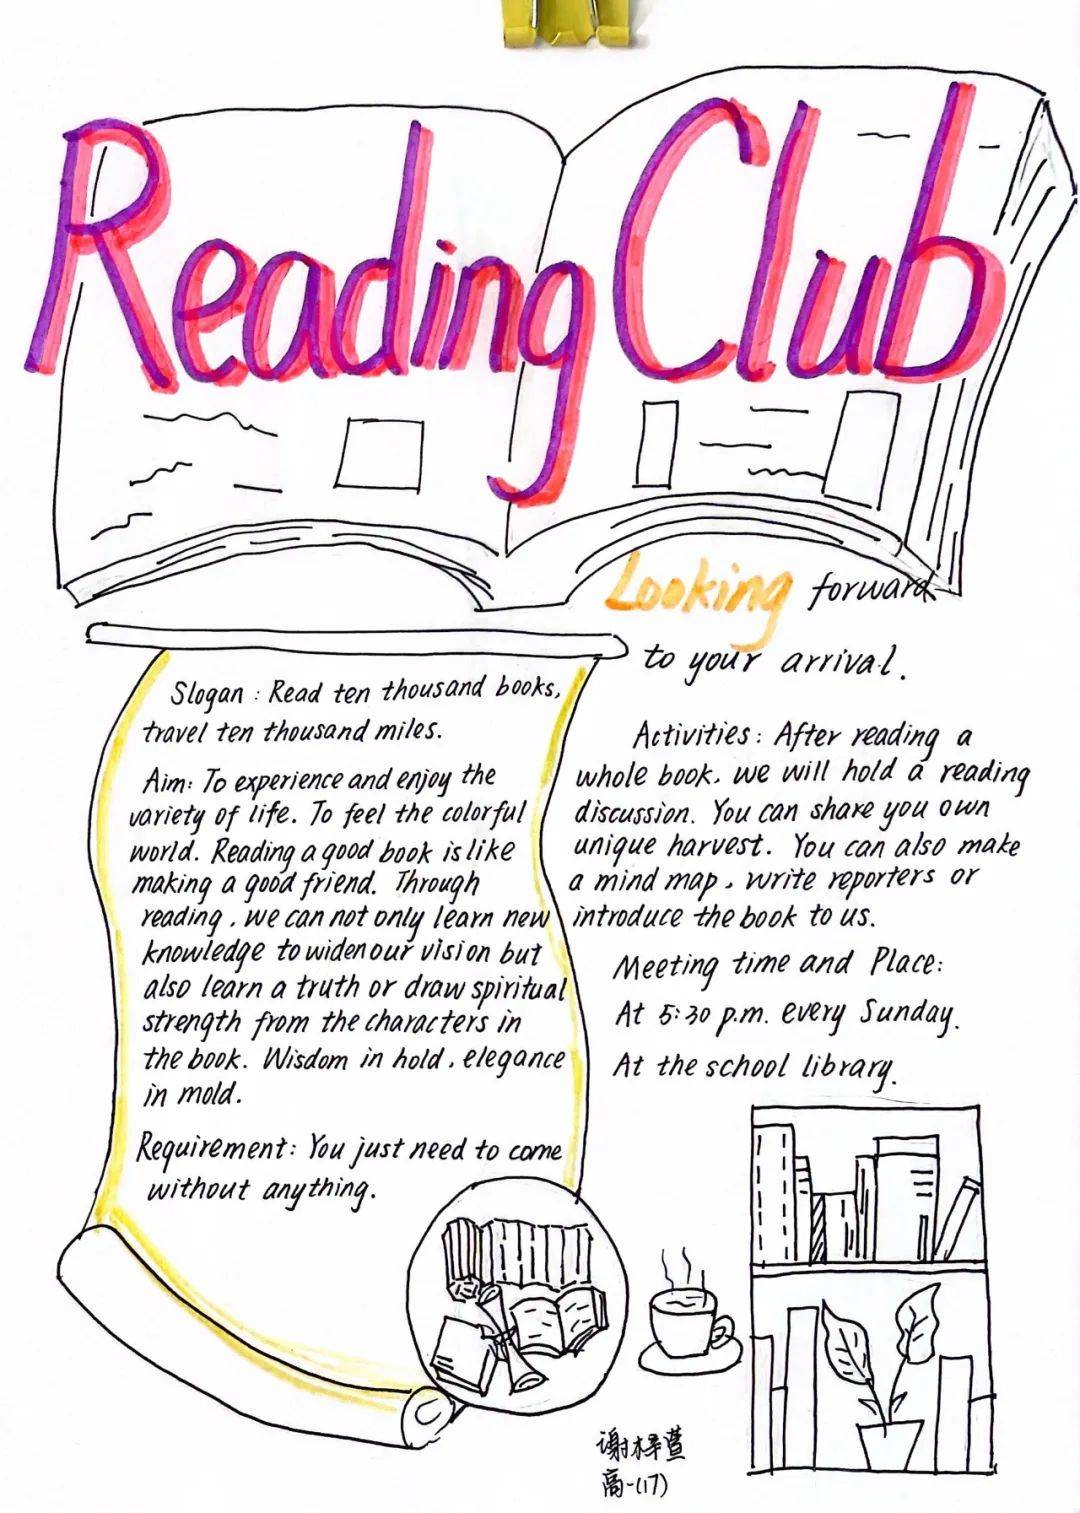 Reading Club
Looking forward
to your arrival.
Slogan: Read ten thousand books,
travel ten thousand miles.
Aim: To experience and enjoy the
variety of life. To feel the colorful
world. Reading a good book is like
making a good friend. Through
reading, we can not only learn new
knowledge to widen our vision but
also learn a truth or draw spiritual
strength from the characters in
the book. Wisdom in hold, elegance
in mold.
Requirement: You just need to come
without anything.
Activities: After reading a
whole book, we will hold a reading
discussion. You can share you own
unique harvest. You can also make
a mind map, write reporters or
introduce the book to us.
Meeting time and Place:
At 5:30 p.m. every Sunday.
At the school library.
谢梓萱
高一(17)